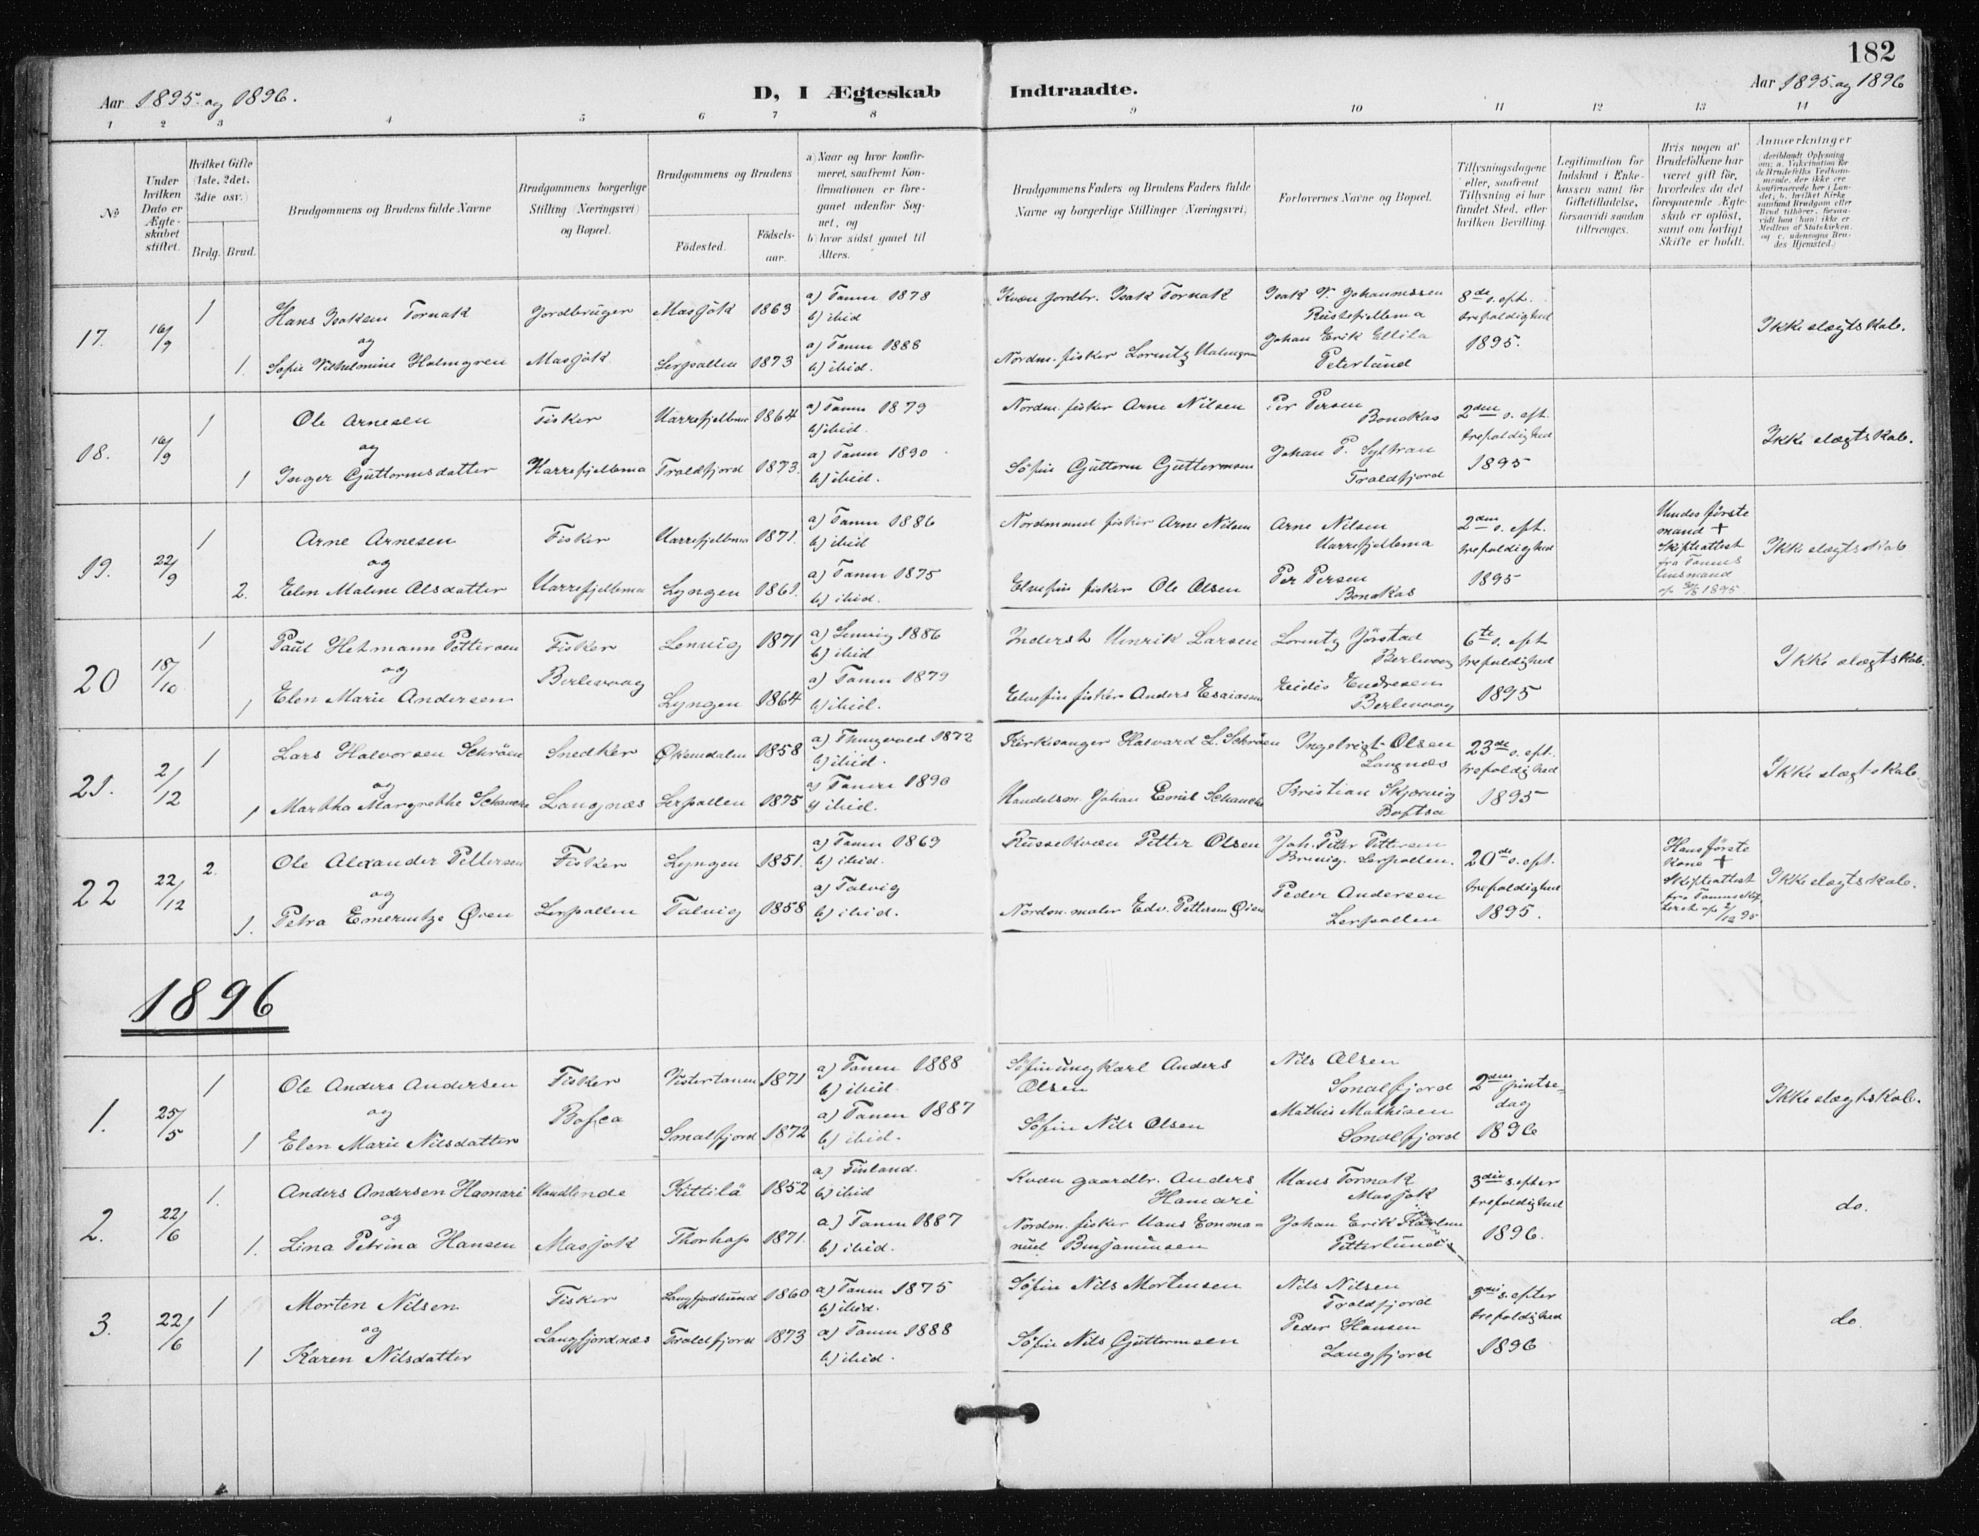 182
Aar 1895 og 1896.
D, I Ægteskab Indtraadte.
Aar 1895 og 1896
1 2 3 4 5 6 7 8 9 10 11 12 13 14
№
Under hvilken Dato er Ægteskabet stiftet.
Hvilket Gifte (1ste, 2det, 3die osv.)
Brdg. Brud.
Brudgommens og Brudens fulde Navne
Brudgommens borgerlige Stilling (Næringsvei) og Bopæl.
Brudgommens og Brudens
Fødested.
Fødselsaar.
a) Naar og hvor konfirmeret, saafremt Konfirmationen er foregaaet udenfor Sognet, og
b) hvor sidst gaaet til Alters.
Brudgommens Faders og Brudens Faders fulde Navne og borgerlige Stillinger (Næringsvei)
Forlovernes Navne og Bopæl.
Tillysningsdagene eller, saafremt Tillysning ei har fundet Sted, efter hvilken Bevilling.
Legitimation for Indskud i Enkekassen samt for Giftetilladelse, forsaavidt saadan tiltrænges.
Hvis nogen af Brudefolkene har været gift før, hvorledes da det foregaaende Ægteskab er opløst, samt om lovligt Skifte er holdt.
Anmærkninger
17. 16/9 1 Hans Isaksen Tornak Jordbruger Masjok 1863 a) Tanen 1878 b) ibid
Kvæn jordbr. Isak Tornak Isak V. Johannessen Rustefjelbma 8de s. eft. trefoldighed 1895. Ikke slægtskab.
og
1. Sofie Vilhelmine Holmgren Masjok Lerpollen 1873 a) Tanen 1888 b) ibid.
Nordm. fisker Lorentz Holmgren Johan Erik Ollila Peterlund
18. 16/9 1 Ole Arnesen Fisker Harrefjelbma 1864 a) Tanen 1879 b) ibid.
Nordm. fisker Arne Nilsen Per Persen Bonakas 2den s. eft. trefoldighed 1895 Ikke slægtskab.
og
1 Inger Guttormsdatter Harrefjelbma Troldfjord 1873. a) Tanen 1890 b) ibid.
Søfin Guttorm Guttormsen Johan P. Troldfjord
19. 22/9 1 Arne Arnesen Fisker Harrefjelbma 1871. a) Tanen 1886 b) ibid
Nordmand fisker Arne Nilsen Arne Nilsen Harrefjelbma 2den s. eft. trefoldighed 1895 Hendes første mand † Skifteattest fra Tanens lensmand 1895 Ikke slægtskab
og
2. Elen Maline Olsdatter Harrefjelbma Lyngen 1861. a) Tanen 1875 b) ibid.
Elvefin fisker Ole Olsen Per Persen Bonakas
20 18/10 1 Paul Hetmann Pettersen Fisker Lenvig 1871 a) Lenvig 1886 b) ibid
Inderst Henrik Larsen Lorentz Jørstad Berlevaag 6te s. eft. trefoldighed 1895 Ikke slægtskab.
og
1 Elen Marie Andersen Berlevaag Lyngen 1864 a) Tanen 1879 b) ibid.
Elvefin fisker Anders Esaiassen Endresen Berlevaag
21. 2/12 1 Lars Halvorsen Schrøen Snedker Øksendalen 1858 a) Thingvold 1872 b) ibid.
Kirkesanger Halvard L. Schrøen Ingebrigt Olsen Langnæs 23de s. eft. trefoldighed 1895 Ikke slægtskab.
og
1 Martha Margrethe Schanche Langnæs Lerpollen 1875 a) Tanen 1890 b) ibid.
Handelsm. Johan Emil Schanche Kristian Skjærvig Boftsa
22 22/12 2. Ole Alexander Pettersen Fisker Lyngen 1851. a) Tanen 1869 b) ibid.
Russekvæn Petter Olsen Joh. Petter Pettersen Lerpollen. 20de s. eft. trefoldighed 1895. Hans første kone † Skifteattest fra Tanens 2/12 95 Ikke slægtskab.
og
1. Petra Emerentze Øien Lerpollen Talvig 1858 a) Talvig b) ibid.
Nordm. maler Edv. Pettersen Øien Peder Andersen Lerpollen
1896
1. 25/5 1 Ole Anders Andersen Fisker Vestertanen 1871 a) Tanen 1888 b) ibid.
Søfin ungkarl Anders Olsen Nils Olsen Smalfjord 2den pintsedag 1896 Ikke slægtskab.
og
1 Elen Marie Nilsdatter Bofca Smalfjord 1872 a) Tanen 1887 b) ibid.
Søfin Nils Olsen Mathis Mathisen Smalfjord
2. 22/6 1. Anders Andersen Hamari Handlende Kittilä 1852 a) Finland. b) ibid
Kvæn gaardbr. Anders Hamari Hans Tornak Masjok 3die s. efter trefoldighed 1896. do.
og
1. Lina Petrina Hansen Masjok Thorhop 1871. a) Tanen 1887 b) ibid.
Nordm. fisker Hans Emmanuel Benjaminsen Johan Erik Petterlund
3. 22/6 1 Morten Nilsen Fisker Langfjordbund 1860 a) Tanen 1875 b) ibid.
Søfin Nils Mortensen Nils Nilsen Troldfjord 3die s. efter trefoldighed 1896 do.
og
1 Karen Nilsdatter Langfjordnæs Troldfjord 1873 a) Tanen 1888 b) ibid.
Søfin Nils Guttormsen Peder Hansen Langfjord